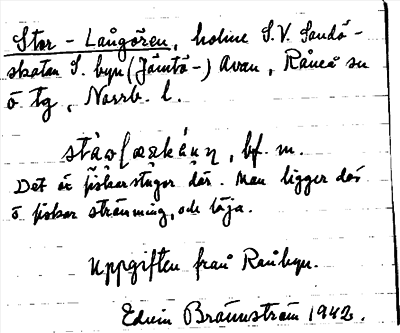 Stor-Laŭgören, holme S.V. Sandö-
skatan S. byn (Jämtö-) Avan, Råneå sn
ö tg, Norrb. l.
bf. m.
Det är fiskarstugor där. Man ligger där
o fiskar strömming, och löja.
Uppgiften från Rånbyn.
Edvin Brännström 1942.